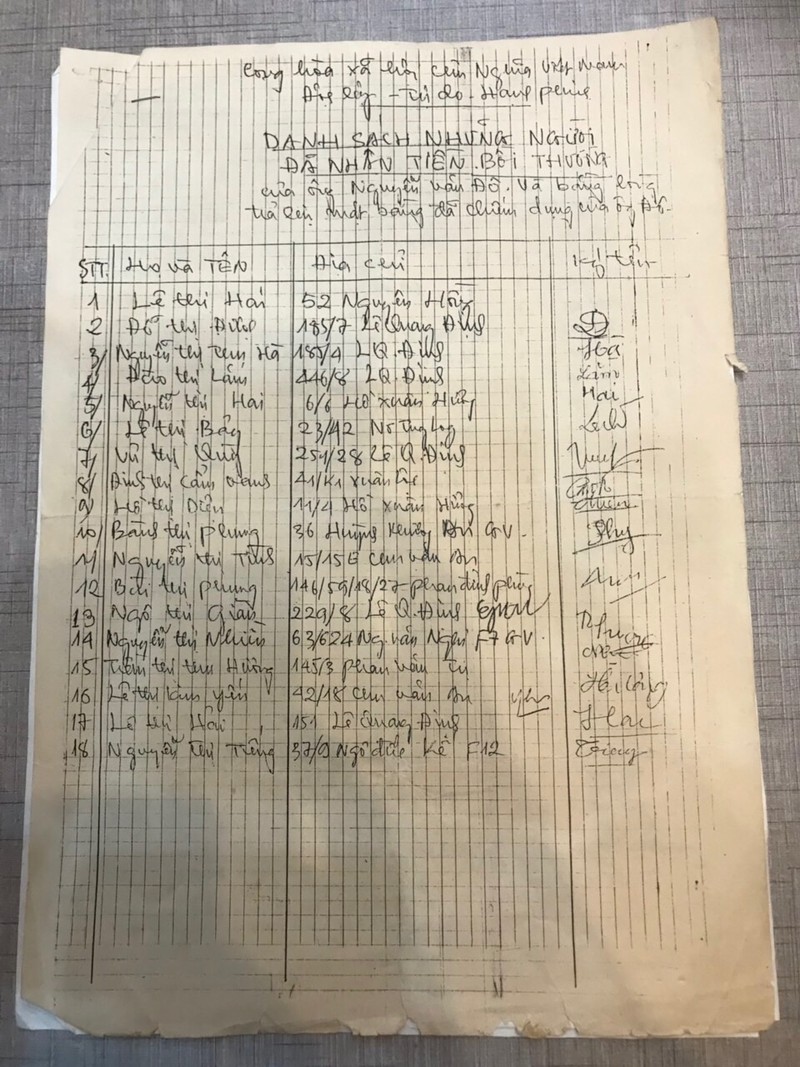 Cộng hòa xã hội chủ Nghĩa Việt Nam
Độc lập - Tự do - Hạnh phúc
DANH SÁCH NHỮNG NGƯỜI
ĐÃ NHẬN TIỀN BỒI THƯỜNG
của ông Nguyễn Văn Độ. Và bằng lòng
trả lại mặt bằng đã chiếm dụng của ông Độ-
STT. Họ và TÊN Địa chỉ Ký tên
1 Lê thị Hai 52 Nguyên Hồng
2 Đỗ thị 185/7 Lê Quang Định
3/ Nguyễn thị thu Hà 185/4 LQ. Định Hà
4/ Đào thị Lắm 446/8 LQ. Định Lắm
5/ Nguyễn thị Hai 6/6 Hồ Xuân Hương Hai
6/ Lê thị Bảy 23/42 Nơ Trang Long
7/ Vũ thị 251/28 Lê Q. Định
8/ Đinh thị cẩm 41/K1 xuân
9/ Hồ thị Diên 11/4 Hồ xuân
10/ Bàng thị phụng 36 An GV.
11/ Nguyễn thị Tỉnh 15/15E chu văn An
12 Bùi thị phụng 146/59/18/27 phan đình phùng
13 Ngô thị Giàu 229/8 Lê Q. Định
14 Nguyễn thị Nhiên 63/624 Ng. văn Nghi F7 GV.
15 thị thu Hương 145/3 phan văn trị
16 Lê thị kim yến 42/18 chu văn An yến
17 Lê thị Hai 151 Lê Quang Định Hai
18 Nguyễn thị Tiếng 37/9 Ngô đức Kế F12